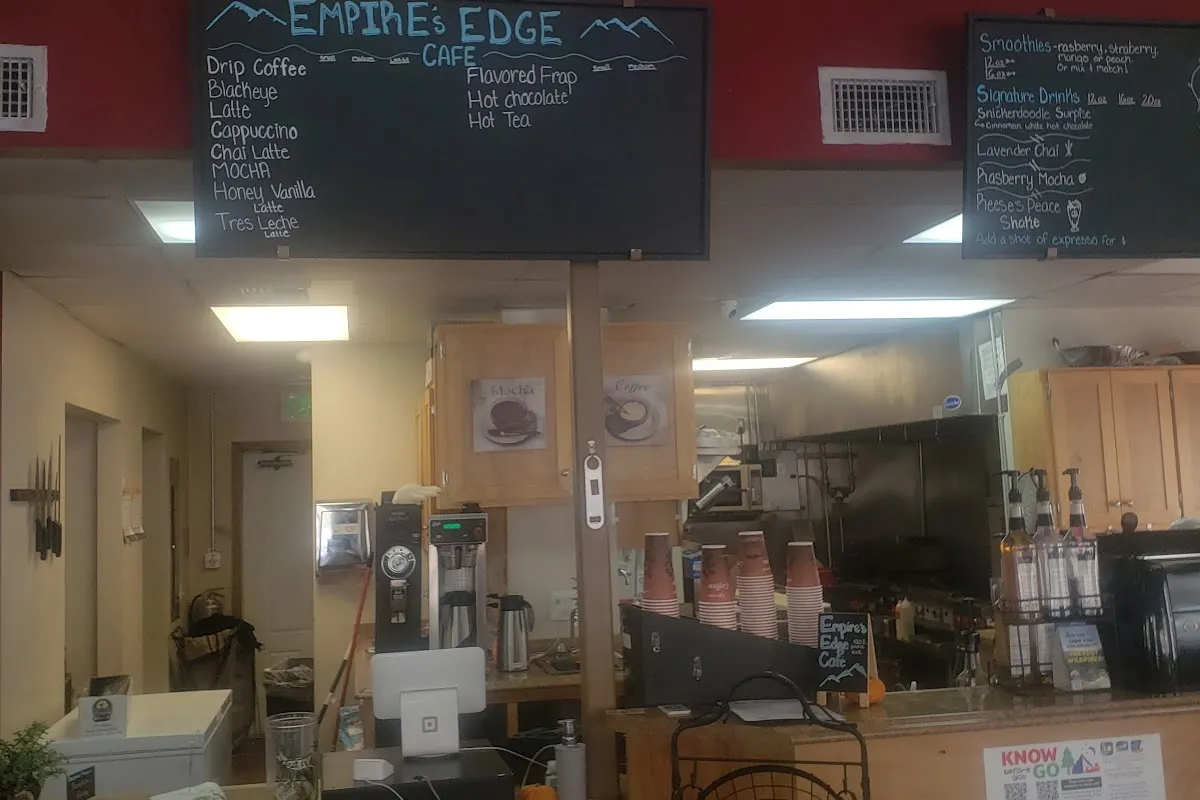 EMPIRE's EDGE
CAFE
small medium Large
Drip Coffee
Blackeye
Latte
Cappuccino
Chai Latte
MOCHA
Honey Vanilla
Latte
Tres Leche
Latte
small medium
Flavored Frap
Hot chocolate
Hot Tea
Smoothies - rasberry, straberry,
mango or peach.
Or mix & match!
12oz
16oz
Signature Drinks 12oz 16oz 20oz
Snickerdoodle Surpise
cinnamon white hot chocolate
Lavender Chai
Rasberry Mocha
Reese's Peace
Shake
Add a shot of expresso for $
Mocha
Coffee
Empire's
Edge
Cafe
KNOW
before you
GO